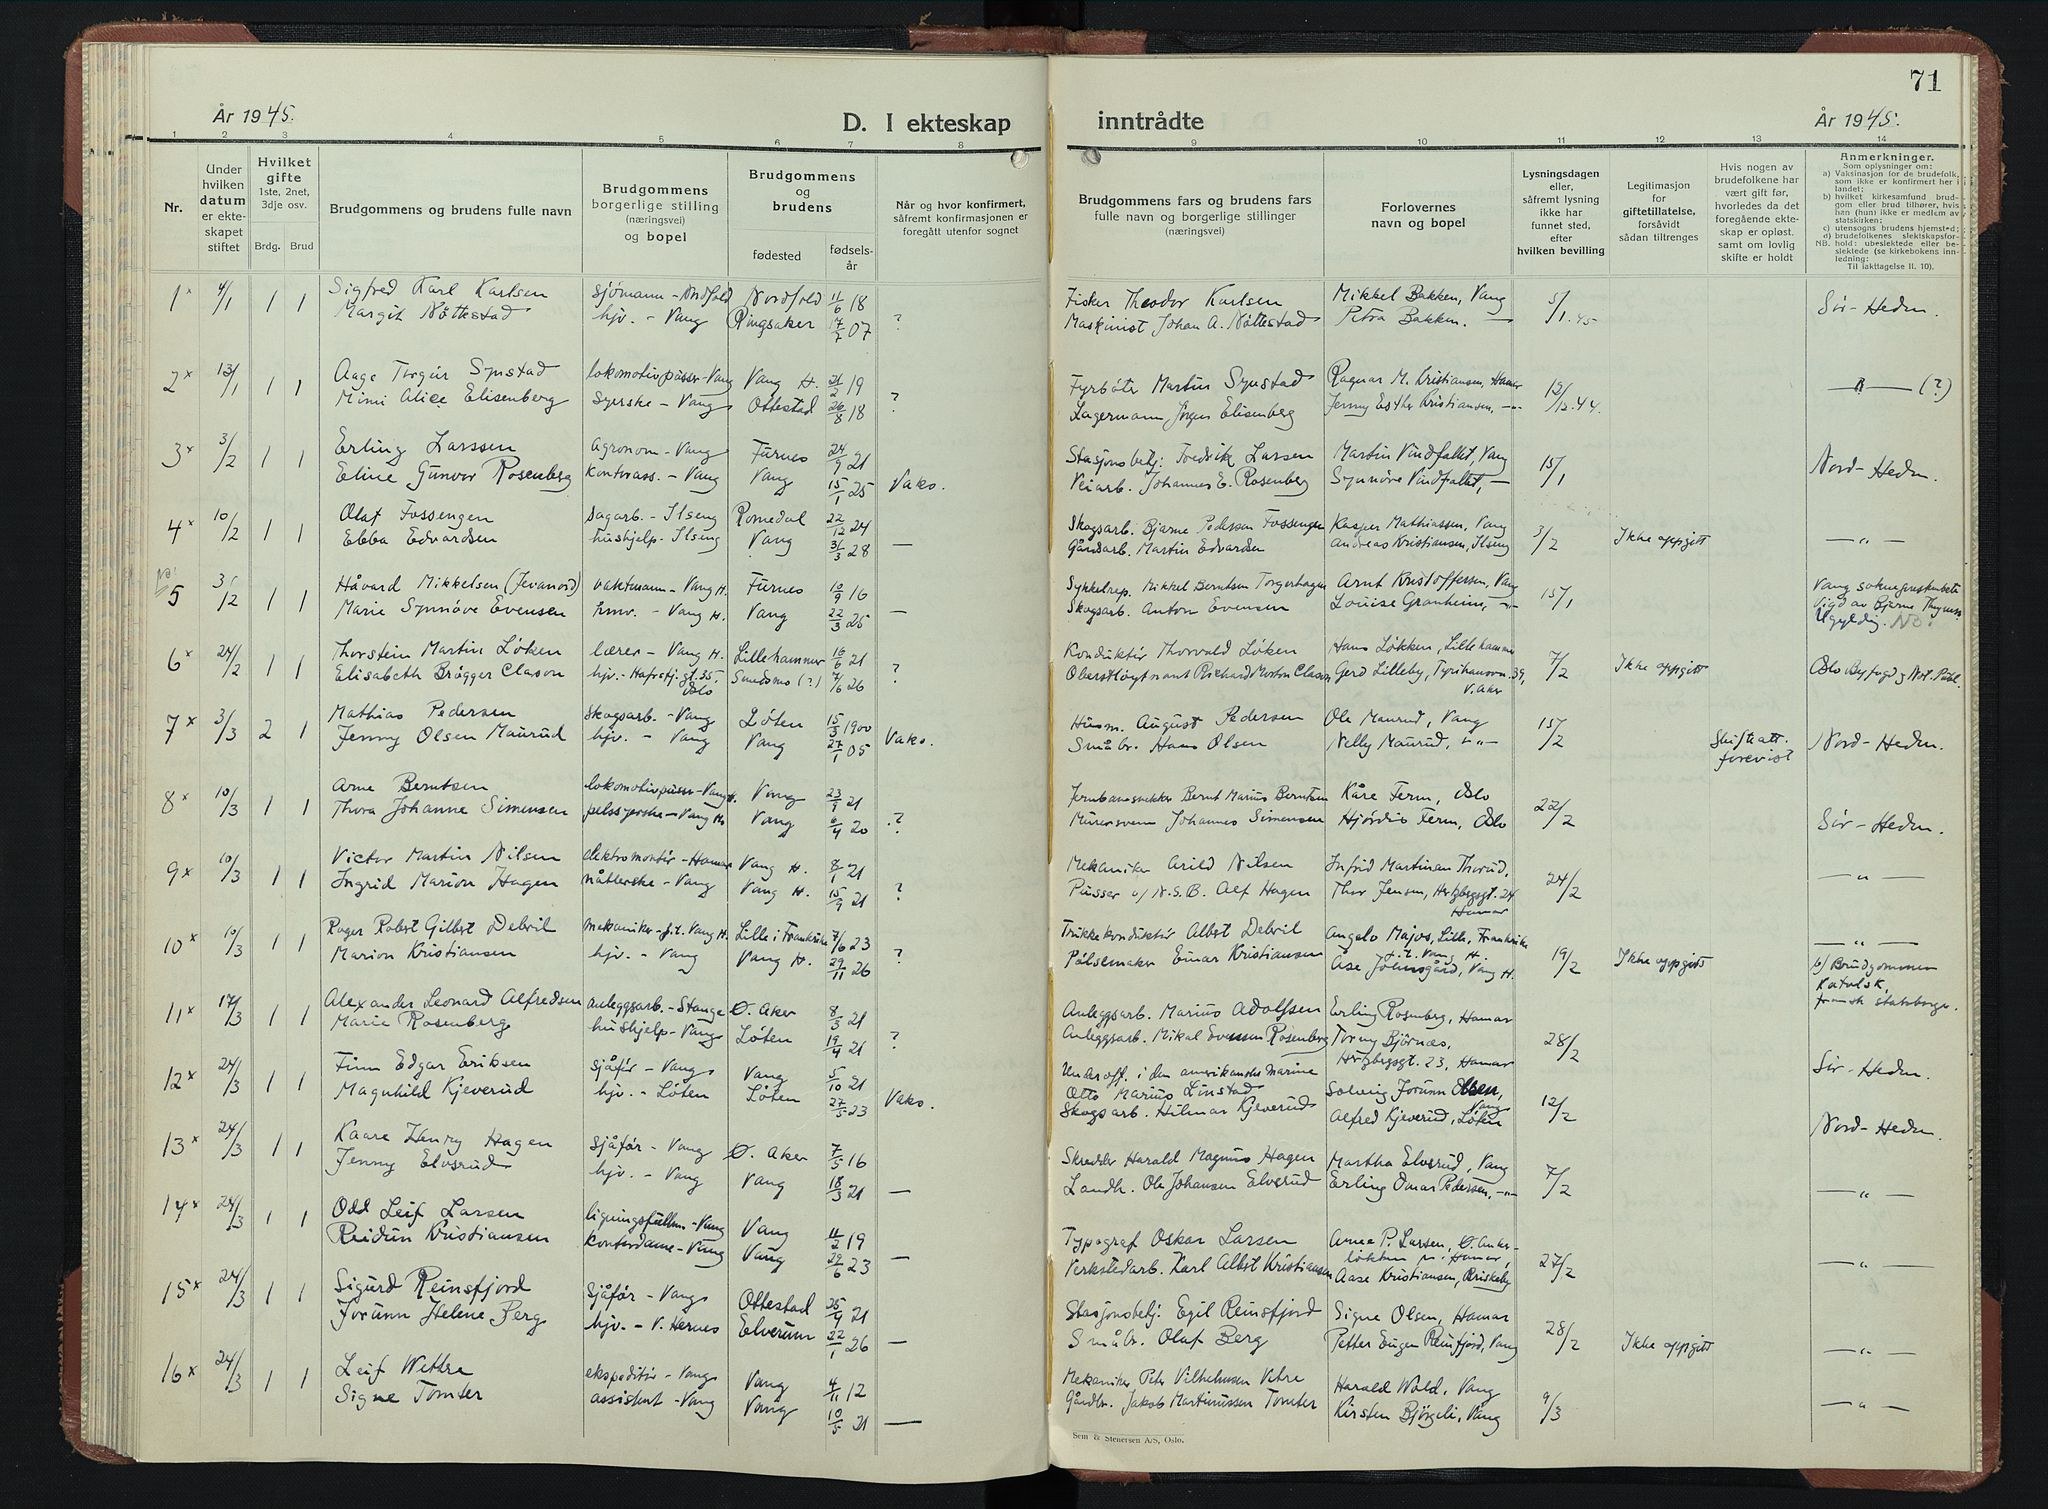 71
År 1945.
D. I ekteskap
inntrådte
År 1945.
1 2 3 4 5 6 7 8 9 10 11 12 13 14
Nr.
Under hvilken datum er ekteskapet stiftet
Hvilket gifte
1ste, 2net, 3dje osv.
Brdg. Brud
Brudgommens og brudens fulle navn
Brudgommens borgerlige stilling (næringsvei) og bopel
Brudgommens og brudens
fødested
fødselsår
Når og hvor konfirmert, såfremt konfirmasjonen er foregått utenfor sognet
Brudgommens fars og brudens fars fulle navn og borgerlige stillinger (næringsvei)
Forlovernes navn og bopel
Lysningsdagen eller, såfremt lysning ikke har funnet sted, efter hvilken bevilling
Legitimasjon for giftetillatelse, forsåvidt sådan tiltrenges
Hvis nogen av brudefolkene har vært gift før, hvorledes da det foregående ekteskap er opløst. samt om lovlig skifte er holdt
Anmerkninger.
Som oplysninger om:
a) Vaksinasjon for de brudefolk, som ikke er konfirmert her i landet;
b) hvilket kirkesamfund brudgom eller brud tilhører, hvis han (hun) ikke er medlem av statskirken;
c) utensogns brudens hjemsted;
d) brudefolkenes slektskapsforhold: ubeslektede eller beslektede (se kirkebokens innledning:
NB.
Til iakttagelse II. 10).
1 x 4/1 1 1 Sigfred Karl Karlsen sjømann - Nordfold Nordfold 11/6 18 Fisker Theodor Karlsen Mikkel Bakken, Vang 5/1.45 Sør-Hedm.
Margit Nøttestad hjv. - Vang Ringsaker 17/7 07 ? Maskinist Johan A. Nøttestad Petra Bakken. —
2 x 13/1 1 1 Aage Torgeir Synstad lokomotivpusser - Vang Vang H. 21/2 19 Fyrbøter Martin Synstad Ragnar M. Kristiansen, Hamar 12/12.44. — " — (?)
Mimi Alice Elisenberg Syerske - Vang Ottestad 26/8 18 ? Lagermann Jørgen Elisenberg Jenny Esther Kristiansen, —"—
3 x 3/2 1 1 Erling Larssen Agronom - Vang Furnes 24/9 21 Stasjonsbetj. Fredrik Larsen Martin Vindfallet, Vang 15/1 Nord-Hedm.
Eline Gunvor Rosenberg kontorass. - Vang Vang 15/1 25 Vaks. Veiarb. Johannes E. Rosenberg Synnøve Vindfallet, —
4 x 10/2 1 1 Olaf Fossengen sagarb. - Ilseng Romedal 22/12 24 Skogsarb. Bjarne Pedersen Fossengen Kasper Mathiassen, Vang 3/2 Ikke oppgitt — " —
Ebba Edvardsen hushjelp - Ilseng Vang 31/3 28 — Gårdsarb. Martin Edvardsen Andreas Kristiansen, Ilseng
5 3/2 1 1 Håvard Mikkelsen (Jevanord) vaktmann - Vang H. Furnes 10/9 16 Sykkelrep. Mikkel Berntsen Torgerhagen Arnt Kristoffersen, Vang 15/1 Vang
Marie Synnøve Evensen hmv. - Vang H. Vang 22/3 25 — Skogsarb. Anton Evensen Louise Granheim, —"— Vigd av Bjarne
Ugyldig. No!
6 x 24/2 1 1 Thorstein Martin Løken lærer - Vang H. Lillehammer 16/6 21 Konduktør Thorvald Løken Hans Løkken, Lillehammer 7/2 Ikke oppgitt Oslo Byfogd
Elisabeth Brøgger Clason hjv. - Hafrsfj.gt. 35, Oslo (?) 7/6 26 ? Oberstløytnant Richard Morton Clason Gerd Lilleby, Tyrihansvn. 39, V. Aker
7 x 3/3 2 1 Mathias Pedersen Skogsarb. - Vang Løten 15/3 1900 Husm. August Pedersen Ole Maurud, Vang 15/2 Skifteatt. forevist Nord-Hedm.
Jenny Olsen Maurud hjv. - Vang Vang 27/1 05 Vaks. Småbr. Hans Olsen Nelly Maurud, —"—
8 x 10/3 1 1 Arne Berntsen lokomotivpusser - Vang H. Vang 23/9 21 Bernt Marius Berntsen Kåre Ferm, Oslo 22/2 Sør-Hedm.
Thora Johanne Simensen pelssyerske - Vang H. Vang 6/4 20 ? Murersvenn Johannes Simensen Hjørdis Ferm, Oslo
9 x 10/3 1 1 Victor Martin Nilsen elektromontør - Hamar Vang H. 8/1 21 Mekaniker Arild Nilsen Martinan Thorud, 24/2 — " —
Ingrid Marion Hagen nåtlerske - Vang Vang H. 15/9 21 ? Pusser v/ N.S.B. Alf Hagen Thor Jensen, Hertzbergsgt. 24 Hamar
10 x 10/3 1 1 Roger Robert Gilbert Debril mekaniker - f.t. Vang H. Lille i Frankrike 7/6 23 Trikkekonduktør Albert Debril Angelo Majos, Lille, Frankrike f.t. Vang H. 19/2 Ikke oppgitt — " —
Marion Kristiansen hjv. - Vang Vang H. 29/11 26 ? Pølsemaker Einar Kristiansen Åse Johnsgård, Vang H. b) Brudgommen Katolsk, fransk statsborger.
11 x 17/3 1 1 Alexander Leonard Alfredsen anleggsarb. - Stange Ø. Aker 8/3 21 Anleggsarb. Marius Adolfsen Erling Rosenberg, Hamar 28/2 Sør-Hedm.
Marie Rosenberg hushjelp - Vang Løten 19/4 21 ? Anleggsarb. Mikal Evensen Rosenberg Torny Bjørnes, Hertzbergsgt. 23, Hamar
12 x 24/3 1 1 Finn Edgar Eriksen sjåfør - Vang Vang 5/10 21 Underoff. i den amerikanske marine Otto Marius Linstad Solveig Jorunn Olsen, Vang 12/2 Nord-Hedm.
Magnhild Kjeverud hjv. - Løten Løten 27/5 23 Vaks. Skogsarb. Hilmar Kjeverud Alfred Kjeverud, Løten
13 x 24/3 1 1 Kaare Henry Hagen Sjåfør - Vang Ø. Aker 7/5 16 Skredder Harald Magnus Hagen Martha Elverud, Vang 7/2 — " —
Jenny Elverud hjv. - Vang Vang 18/3 21 — Landh. Ole Johansen Elverud Erling Omar Pedersen, —"—
14 x 24/3 1 1 Odd Leif Larsen ligningsfullm. - Vang Vang 11/2 19 Typograf Oskar Larsen Arne P. Larsen, Ø. Ankerløkken pr. Hamar, 27/2 — " —
Reidun Kristiansen kontordame - Vang Vang 29/6 23 — Verkstedarb. Karl Albert Kristiansen Aase Kristiansen, Briskeby
15 x 24/3 1 1 Sigurd Reinsfjord Sjåfør - Vang Ottestad 25/9 21 Stasjonsbetj. Egil Reinsfjord Signe Olsen, Hamar 28/2 Ikke oppgitt — " —
Jorunn Helene Berg hjv. - V. Hernes Elverum 22/1 26 — Småbr. Olaf Berg Petter Eugen Reinsfjord, Vang
16 x 24/3 1 1 Leif Wettre ekspeditør - Vang Vang 4/11 12 Mekaniker Peter Vilhelmsen Vetre Harald Wold, Vang 9/3 — " —
Signe Tomter assistent - Vang Vang 10/5 21 — Gårdbr. Jakob Martinussen Tomter Kirsten Bjørgeli, Vang
Sem & Stenersen A/S, Oslo.